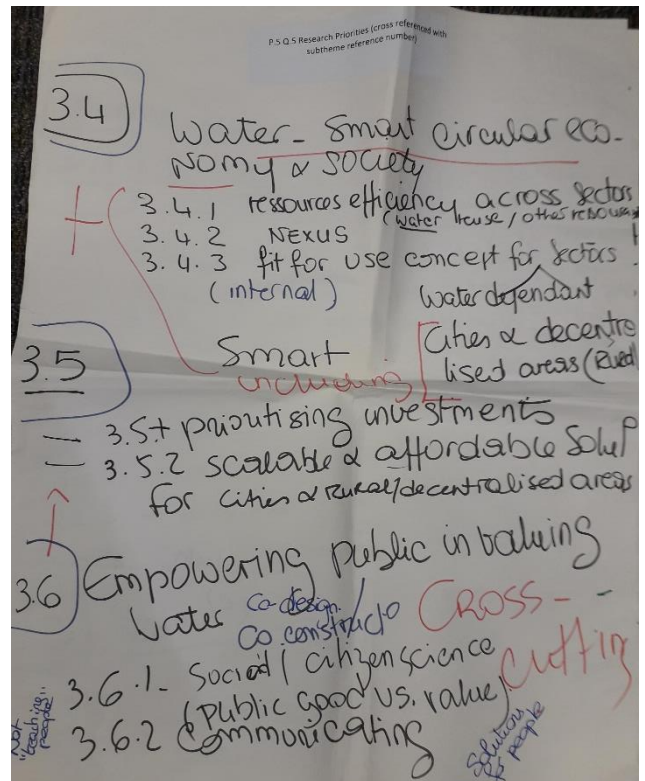 P.S Q.5 Research Priorities (cross referenced with
subtheme reference number)
3.4
Water-Smart circular eco-
nomy & society
3.4.1 ressources efficiency across sectors
(water reuse / other resour
3.4.2 NEXUS
3.4.3 fit for use concept for sectors !
(internal) Water dependant
3.5
Smart
including
Cities & decentra
lised areas (Rural
3.5.1 prioritising investments
3.5.2 scalable & affordable Solut
for cities & Rural/decentralised areas
3.6 Empowering public in valuing
water
Co-design/
Co.construct°
CROSS-
cutting
3.6.1. Social / citizen science
(public good vs. value)
3.6.2 Communicating
Not
"teaching"
people
Solution
for people